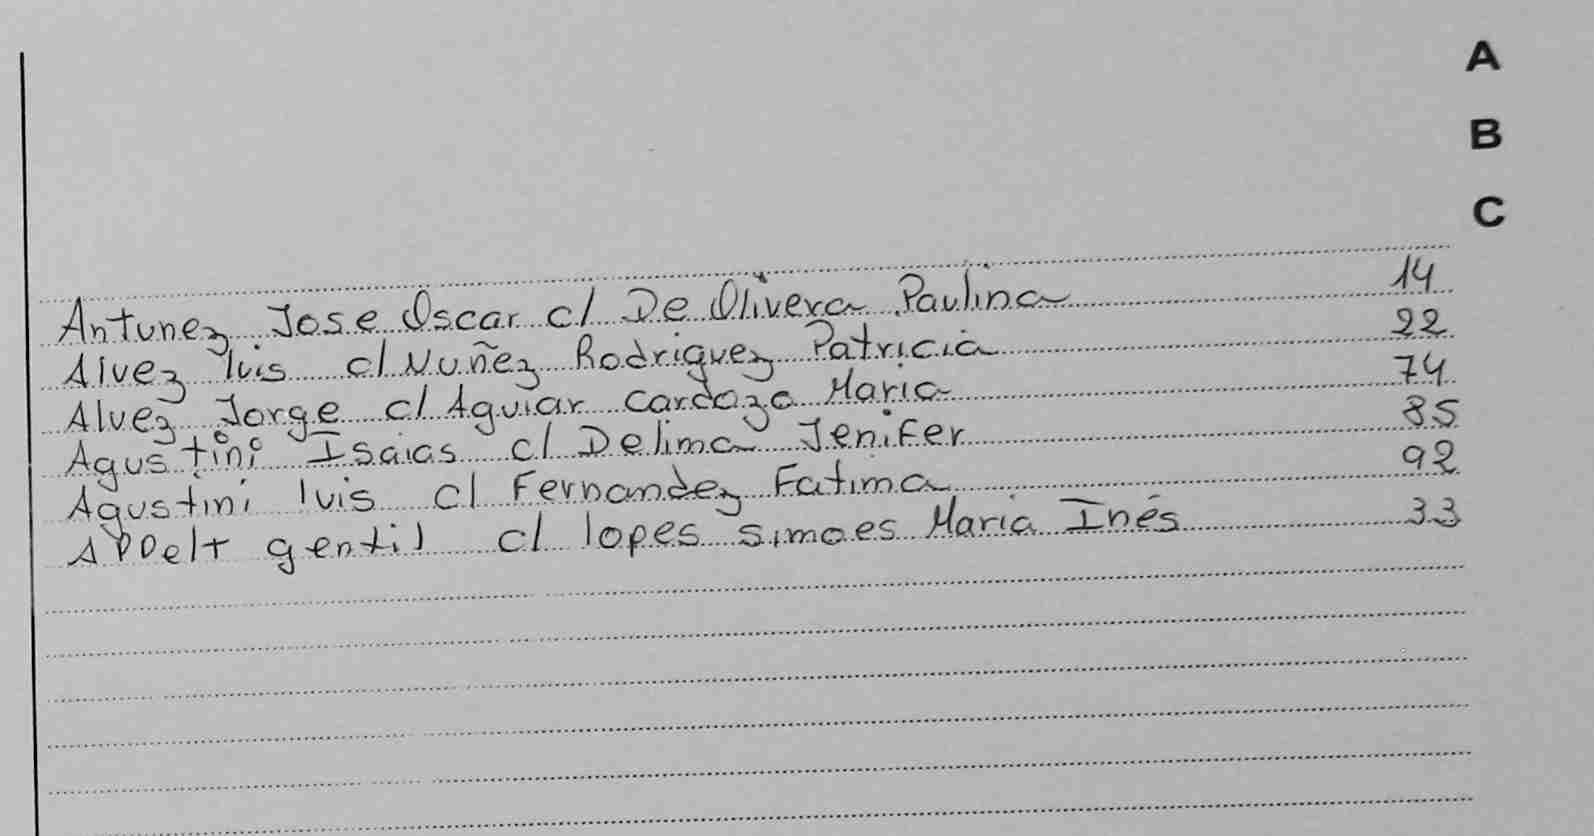 A
B
C
Antunez Jose Oscar c/ De Olivera Paulina 14
Alvez luis c/ Nuñez Rodriguez Patricia 22
Alvez Jorge c/ Aguiar Cardozo Maria 74
Agustini Isaias c/ Delima Jenifer 85
Agustini luis c/ Fernandez Fatima 92
Appelt gentil c/ lopes simoes Maria Inés 33